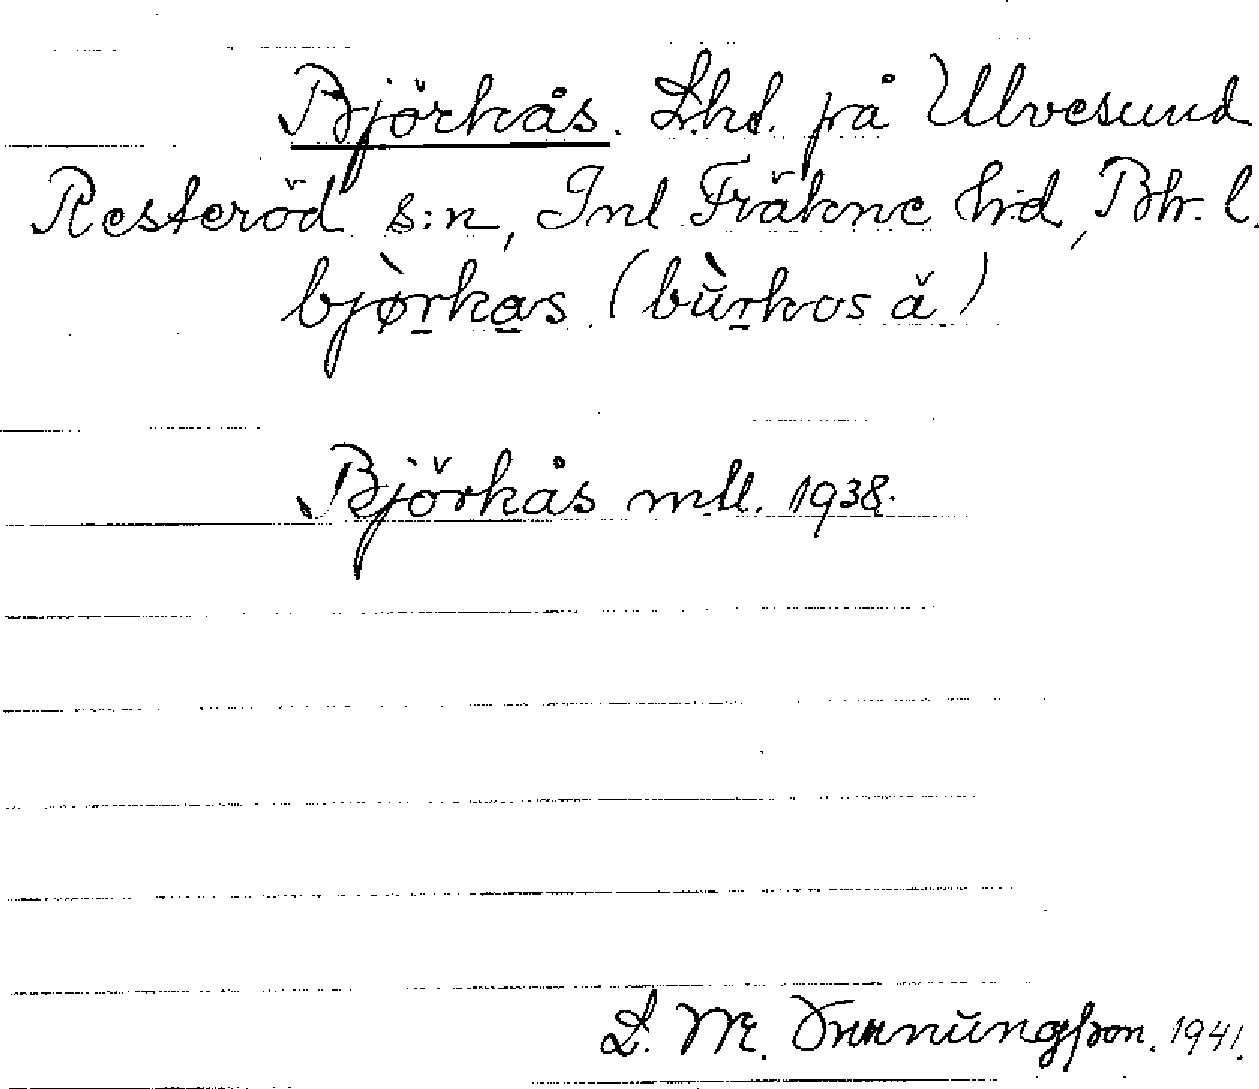 Björkås. Lhd. på Ulvesund
Resteröd s:n, Inl Fräkne hd, Bhr. l.
bjø̀rkas (bùrkos ă)
Björkås mtl. 1938.
L. M. 1941.